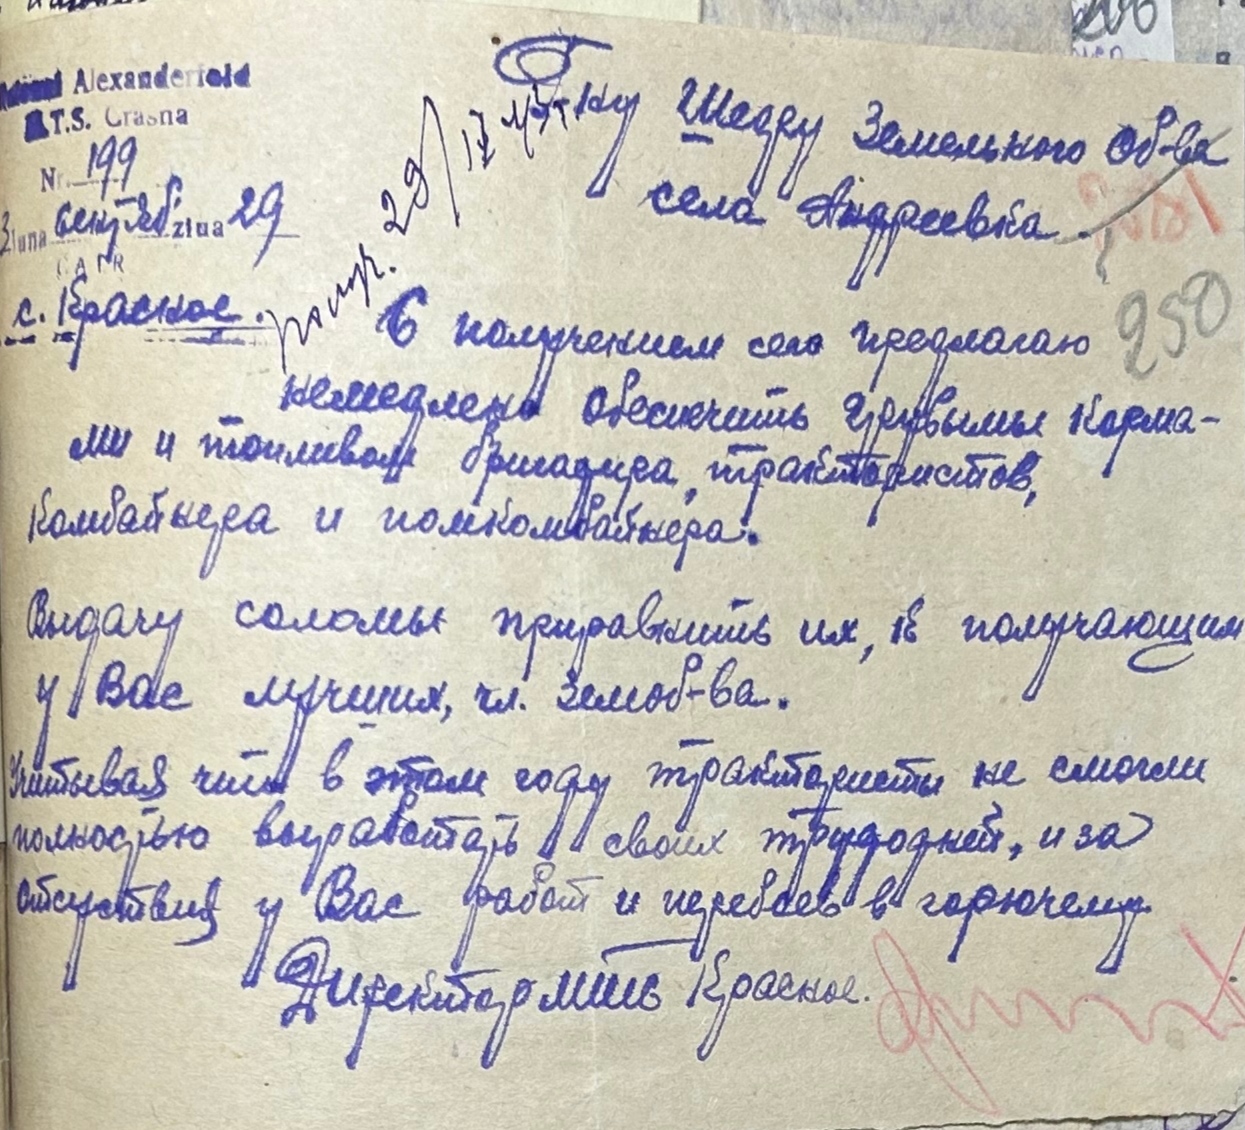 Alexanderfeld
T.S. Crasna
Nr. 199
Luna сентяб. ziua 29
с. Красное.
получ. 29/IX 43 г.
Г-ну Шефу Земельного Об-ва
села Андреевка.
250
С получением сего предлагаю
немедлено обеспечить грубымы корма-
ми и топливом бригадира, трактористов,
комбайнера и помкомбайнера.
Выдачу соломы приравнить их, к получающим
у Вас лучших, чл. Земоб-ва.
Учитывая что в этом году трактористы не смогли
полностью выработать своих трудодней, из за
отсуствия у Вас работ и перебоев в горючему
Директор МТС Красное.